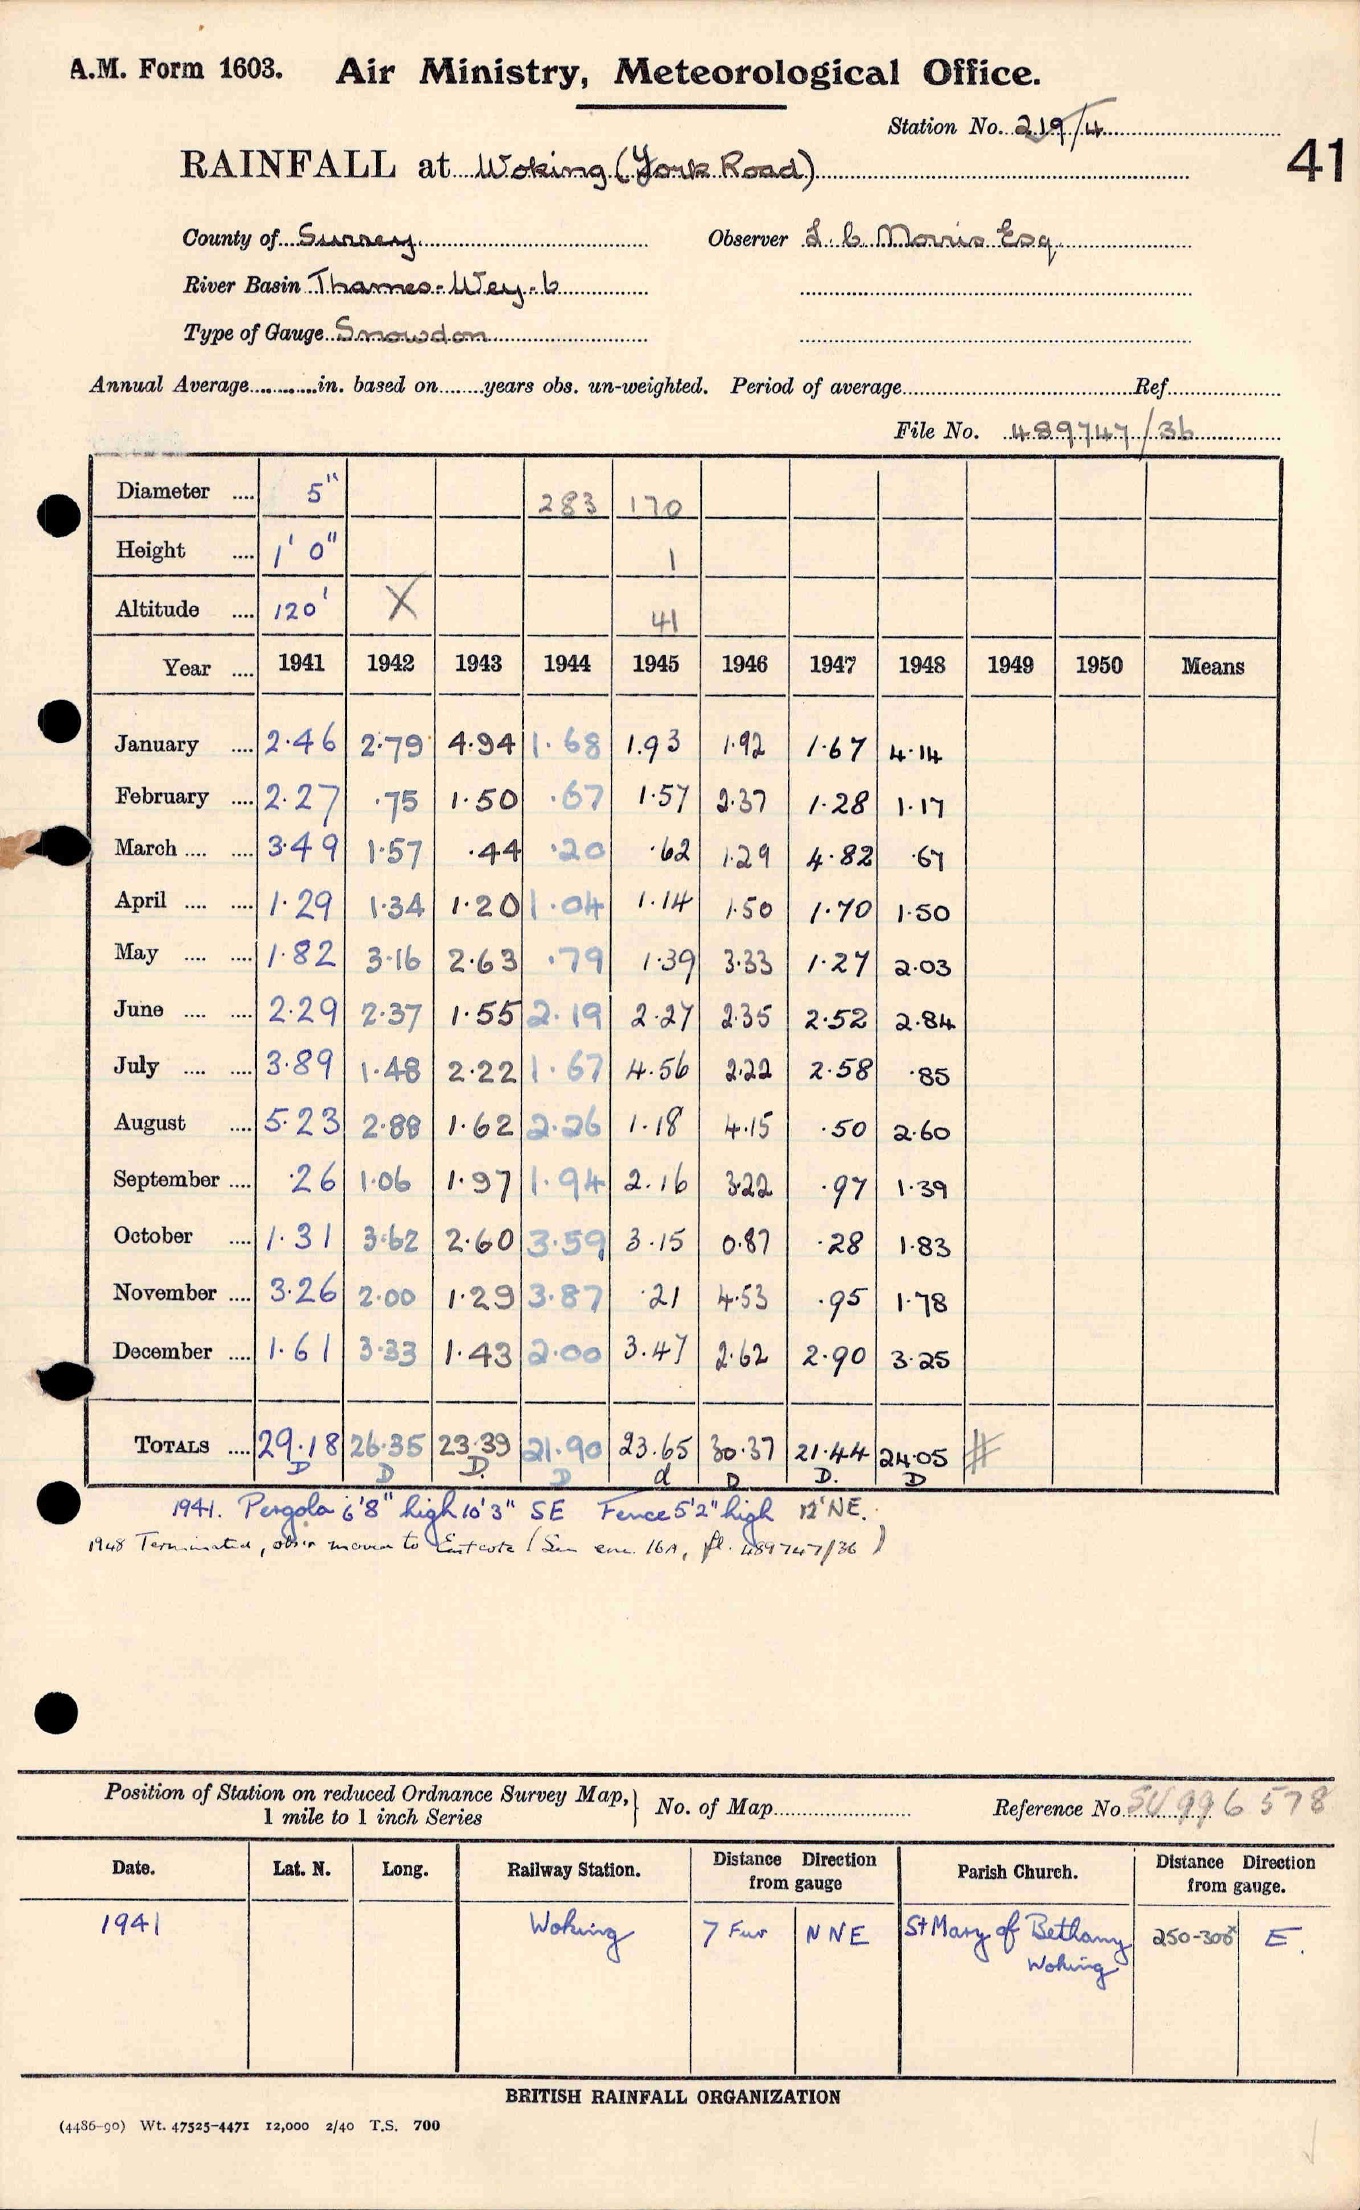 A.M. Form 1603. Air Ministry, Meteorological Office.
Station No. 219/4
41
RAINFALL at Woking (York Road)
County of Surrey. Observer L. C. Morris Esq.
River Basin Thames-Wey-6
Type of Gauge Snowdon
Annual Average in. based on years obs. un-weighted. Period of average Ref.
File No. 489747/36
Diameter 5" 283 170
Height 1' 0" 1
Altitude 120' X 41
Year 1941 1942 1943 1944 1945 1946 1947 1948 1949 1950 Means
January 2.46 2.79 4.94 1.68 1.93 1.92 1.67 4.14
February 2.27 .75 1.50 .67 1.57 2.37 1.28 1.17
March 3.49 1.57 .44 .20 .62 1.29 4.82 .67
April 1.29 1.34 1.20 1.04 1.14 1.50 1.70 1.50
May 1.82 3.16 2.63 .79 1.39 3.33 1.27 2.03
June 2.29 2.37 1.55 2.19 2.27 2.35 2.52 2.84
July 3.89 1.48 2.22 1.67 4.56 2.22 2.58 .85
August 5.23 2.88 1.62 2.26 1.18 4.15 .50 2.60
September .26 1.06 1.97 1.94 2.16 3.22 .97 1.39
October 1.31 3.62 2.60 3.59 3.15 0.87 .28 1.83
November 3.26 2.00 1.29 3.87 .21 4.53 .95 1.78
December 1.61 3.33 1.43 2.00 3.47 2.62 2.90 3.25
TOTALS 29.18 26.35 23.39 21.90 23.65 30.37 21.44 24.05 #
D D D. D d D D. D
1941. Pergola 6'8" high 10'3" SE Fence 5'2" high 12' NE.
1948 Terminated, obs'r moved to Eastcote (See enc. 16A, fl. 489747/36)
Position of Station on reduced Ordnance Survey Map, } No. of Map Reference No. SU 996 578
1 mile to 1 inch Series
Date. Lat. N. Long. Railway Station. Distance Direction from gauge Parish Church. Distance Direction from gauge.
1941 Woking 7 Fur NNE St Mary of Bethany 250-300x E.
Woking
BRITISH RAINFALL ORGANIZATION
(4486-90) Wt. 47525-4471 12,000 2/40 T.S. 700